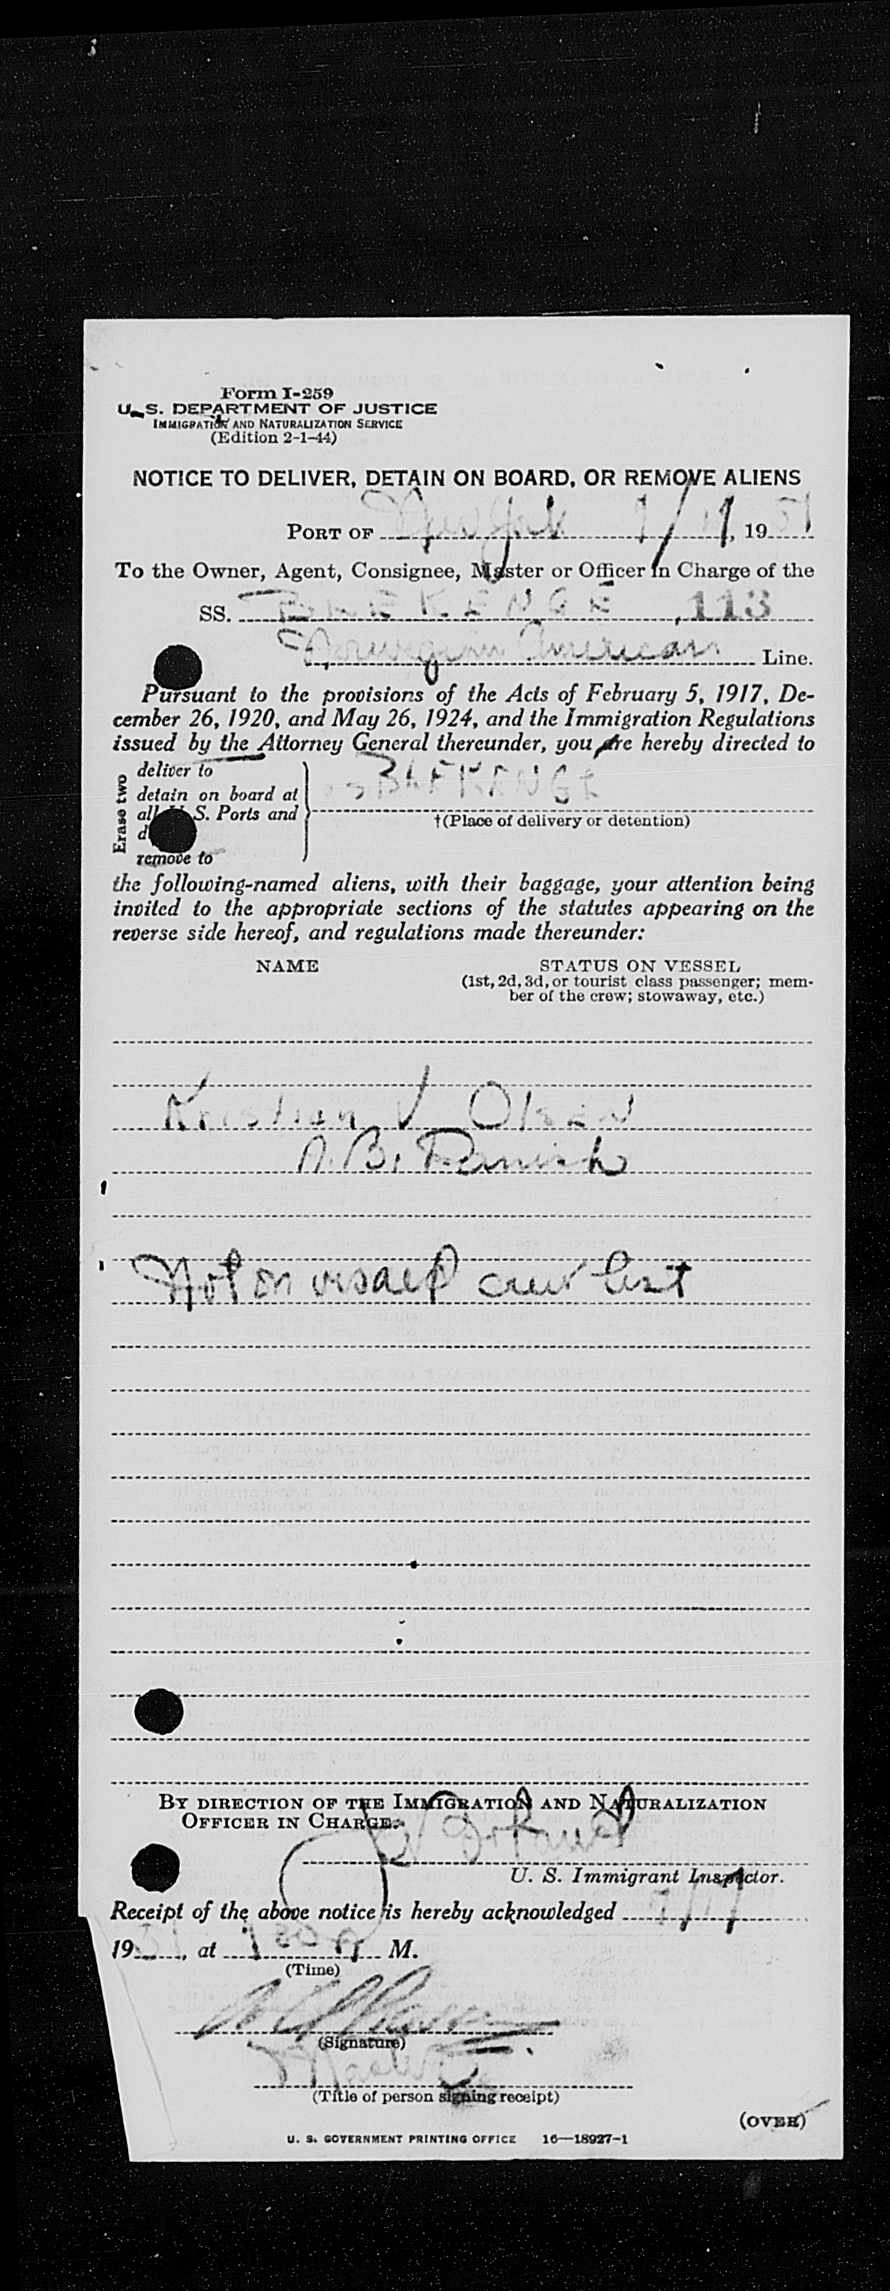 Form I-259
U. S. DEPARTMENT OF JUSTICE
IMMIGRATION AND NATURALIZATION SERVICE
(Edition 2-1-44)
NOTICE TO DELIVER, DETAIN ON BOARD, OR REMOVE ALIENS
PORT OF New York 9/17, 1951
To the Owner, Agent, Consignee, Master or Officer in Charge of the
SS. BREKENGE, 113
Norwegian American Line.
Pursuant to the provisions of the Acts of February 5, 1917, De-
cember 26, 1920, and May 26, 1924, and the Immigration Regulations
issued by the Attorney General thereunder, you are hereby directed to
Erase two
deliver to
detain on board at
all U. S. Ports and
remove to
†(Place of delivery or detention)
the following-named aliens, with their baggage, your attention being
invited to the appropriate sections of the statutes appearing on the
reverse side hereof, and regulations made thereunder:
NAME STATUS ON VESSEL
(1st, 2d, 3d, or tourist class passenger; mem-
ber of the crew; stowaway, etc.)
Kristian V Olsen
A.B. Danish
Not on vessel crew list
BY DIRECTION OF THE IMMIGRATION AND NATURALIZATION
OFFICER IN CHARGE:
U. S. Immigrant Inspector.
Receipt of the above notice is hereby acknowledged 9/17
1951, at M.
(Time)
(Signature)
Master
(Title of person signing receipt)
(OVER)
U. S. GOVERNMENT PRINTING OFFICE 16—18927-1